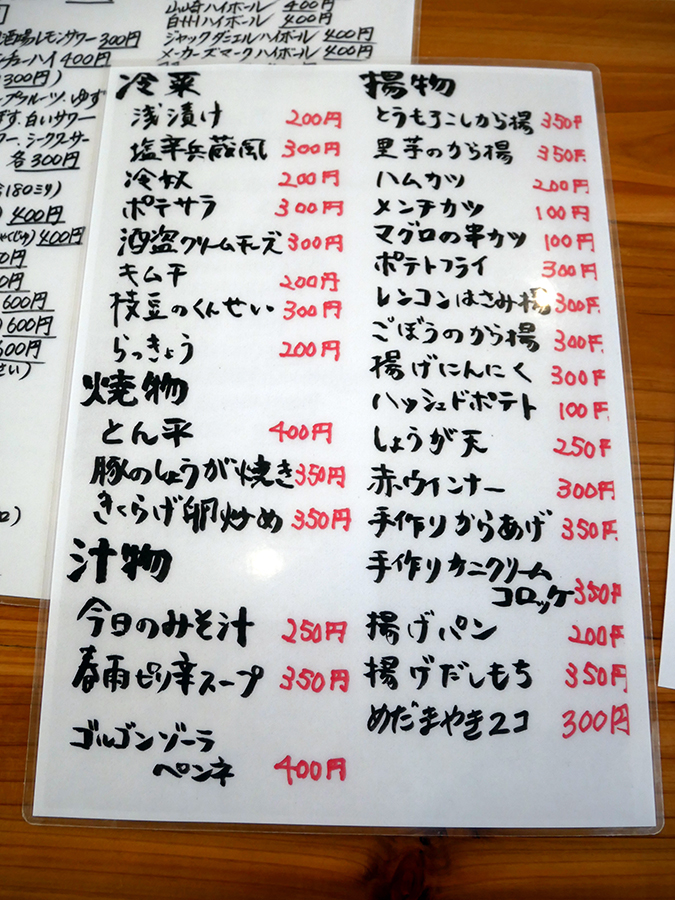 山崎ハイボール 400円
白州ハイボール 400円
ジャックダニエルハイボール 400円
メーカーズマークハイボール 400円
酒場レモンサワー 300円
チューハイ 400円
300円)
ープフルーツ、ゆず
白いサワー
シークワーサー
各300円
180ミリ)
400円
400円
600円
600円
600円
さい)
冷菜
浅漬け 200円
塩辛兵蔵風 300円
冷奴 200円
ポテサラ 300円
酒盗クリームチーズ 300円
キムチ 200円
枝豆のくんせい 300円
らっきょう 200円
焼物
とん平 400円
豚のしょうが焼き 350円
きくらげ卵炒め 350円
汁物
今日のみそ汁 250円
春雨ピリ辛スープ 350円
ゴルゴンゾーラ
ペンネ 400円
揚物
とうもろこしから揚 350円
里芋のから揚 350円
ハムカツ 200円
メンチカツ 100円
マグロの串カツ 100円
ポテトフライ 300円
レンコンはさみ揚 300円
ごぼうのから揚 300円
揚げにんにく 300円
ハッシュドポテト 100円
しょうが天 250円
赤ウインナー 300円
手作りからあげ 350円
手作りカニクリーム
コロッケ 350円
揚げパン 200円
揚げだしもち 350円
めだまやき2コ 300円